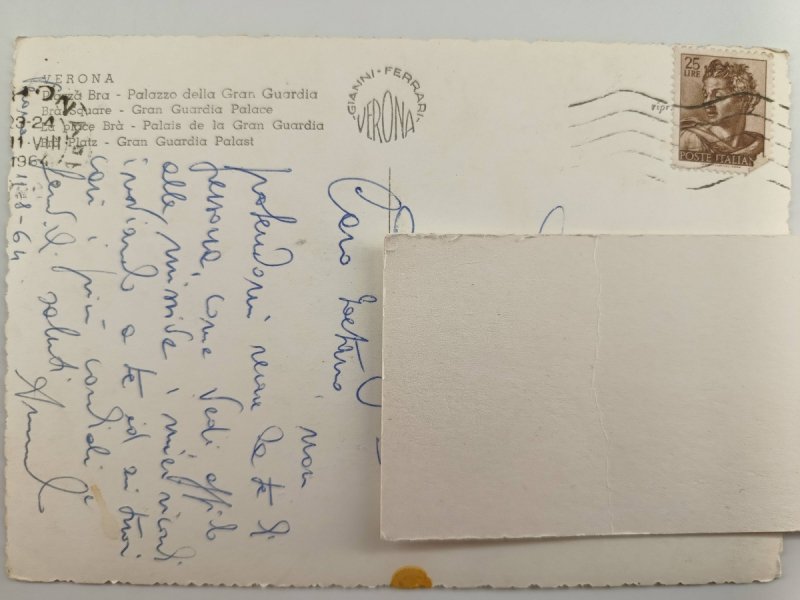 VERONA
Piazza Bra - Palazzo della Gran Guardia
Brà Square - Gran Guardia Palace
La place Brà - Palais de la Gran Guardia
Brà Platz - Gran Guardia Palast
GIANNI · FERRARI
VERONA
25
LIRE
POSTE ITALIANE
23-24
11·VIII
1964
11-8-64
Caro Gaetano,
non
potendomi recare da te di
persona, come vedi affido
alla missiva i miei ricordi
inviando a te ed ai tuoi
cari i più cordiali
saluti